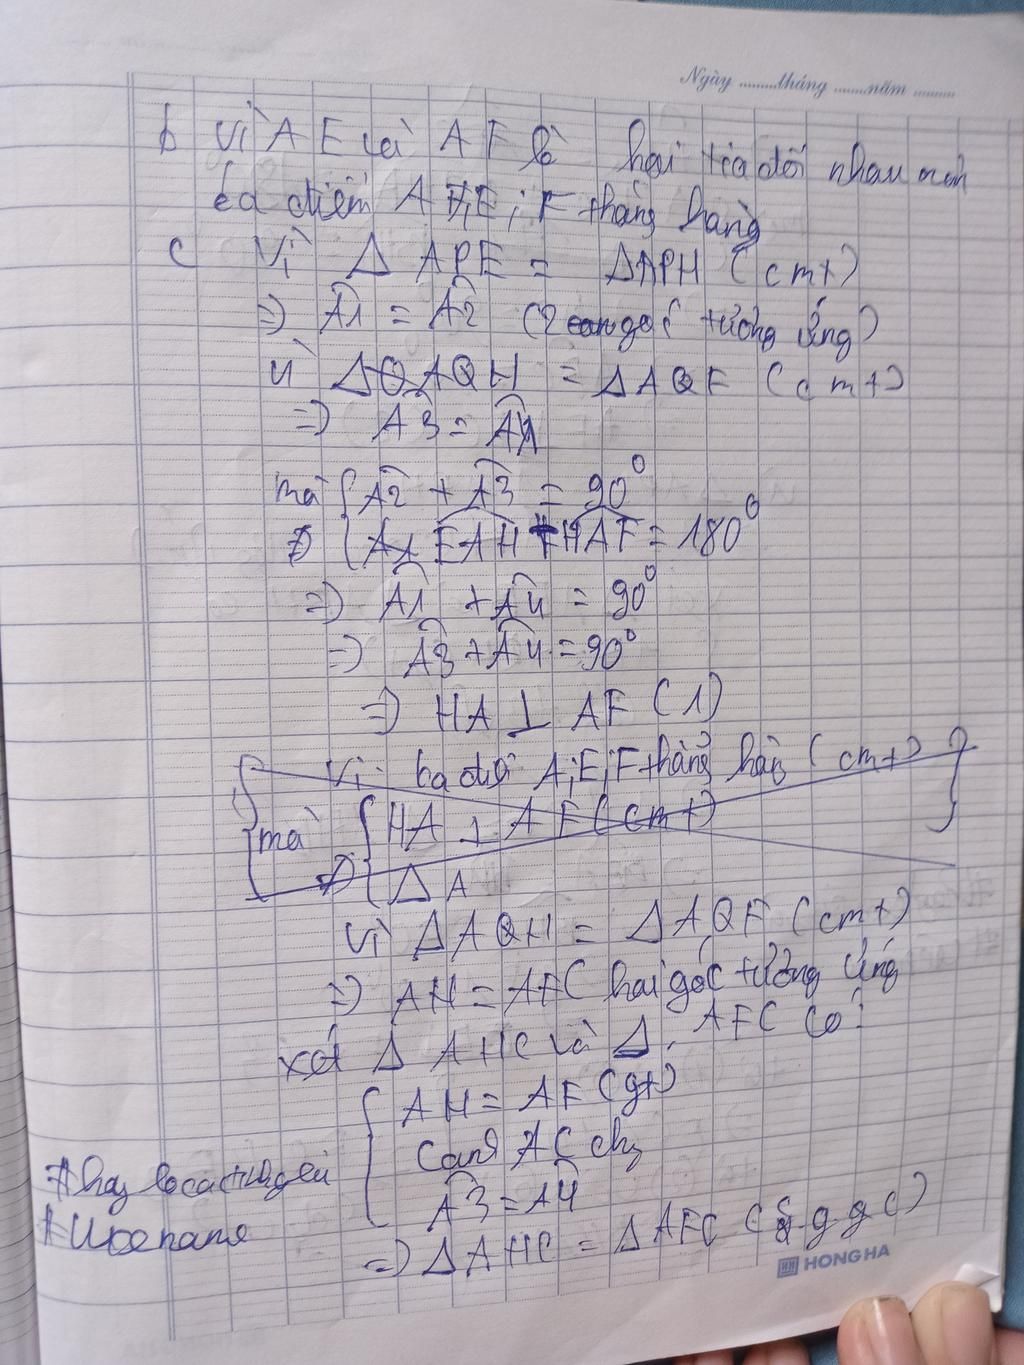 Ngày ......... tháng ....... năm .........
b Vì AE và AF là hai tia đối nhau nên
ba điểm A, E; F thẳng hàng
c Vì Δ APE = ΔAPH (cmt)
=> A1 = A2 (2 góc tương ứng)
vì ΔAQH = ΔAQF (cmt)
=> A3 = A4
mà { A2 + A3 = 90°
{ EAH + HAF = 180°
=> A1 + A4 = 90°
=> A3 + A4 = 90°
=> HA ⊥ AF (1)
Vì ba điể A;E;F thẳng hàng (cmt)
mà { HA ⊥ AF (cmt)
=> { Δ A
Vì ΔAQH = ΔAQF (cmt)
=> AH = AF ( hai góc tương ứng
xét Δ AHC và Δ AFC có:
{ AH = AF (gt)
Cạnh AC chg
A3 = A4
=> ΔAHC = ΔAFC (c g c)
HONG HA